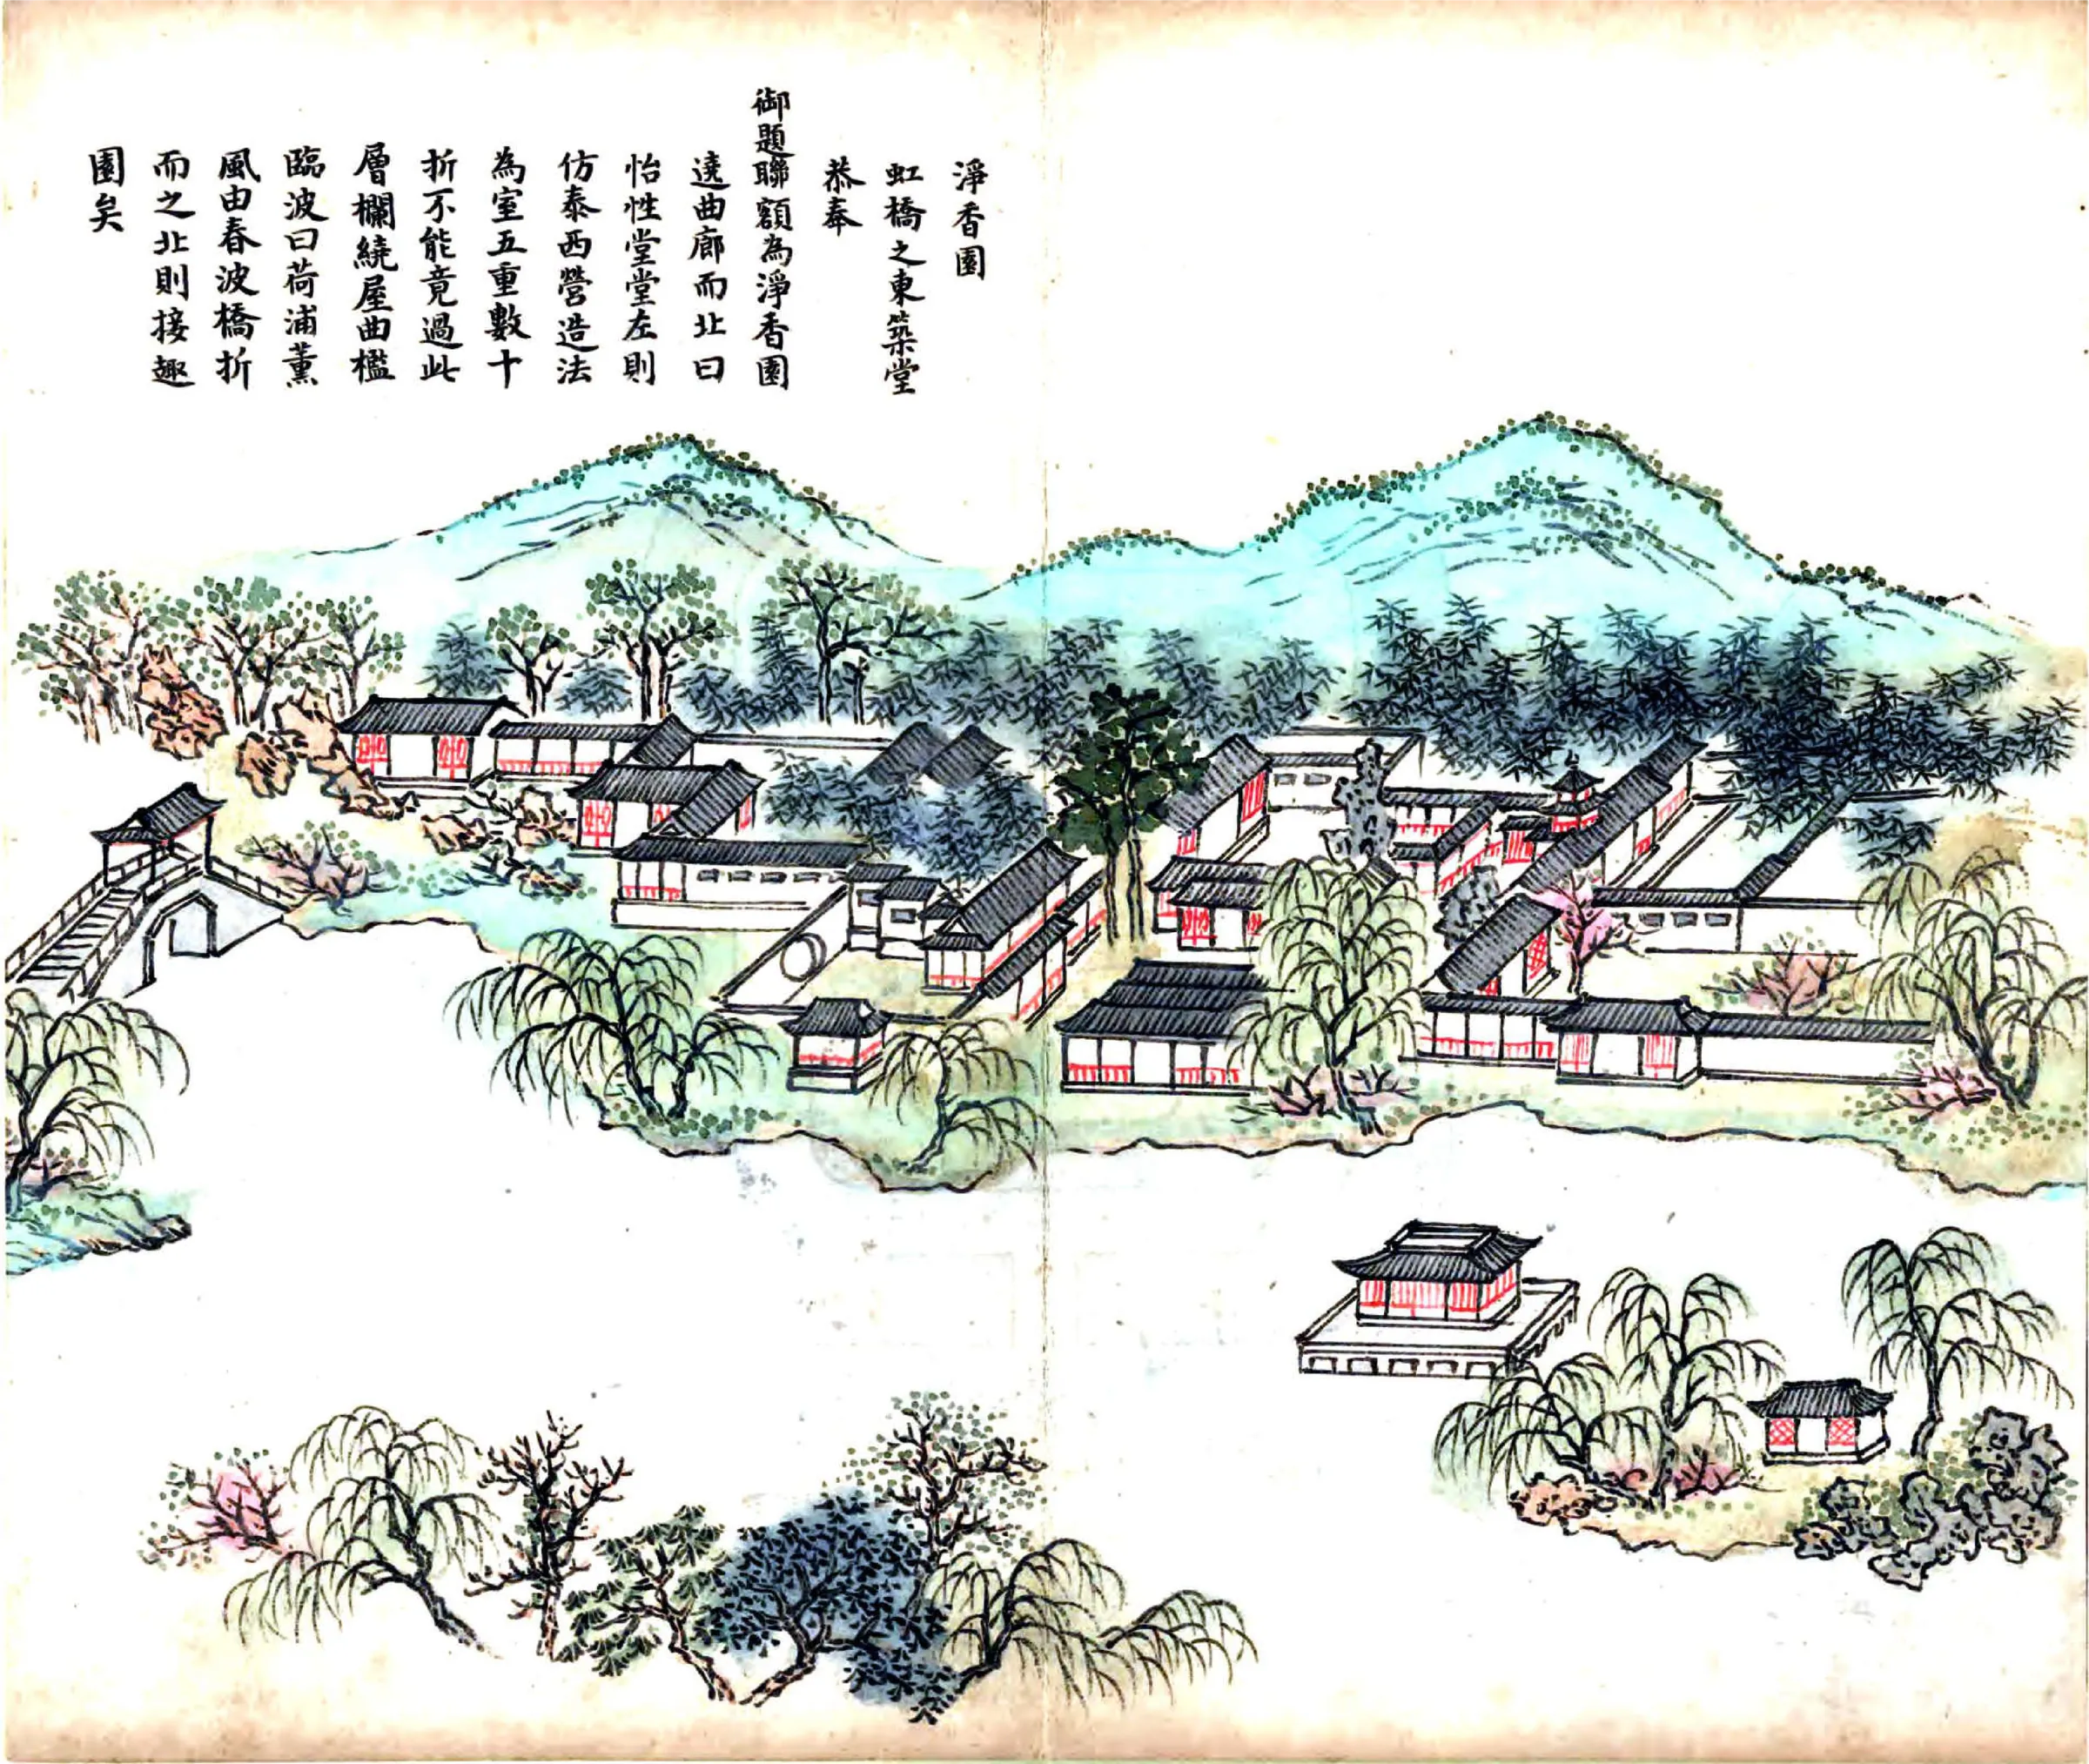 淨香園
虹橋之東築堂
恭奉
御題聯額為淨香園
遶曲廊而北曰
怡性堂堂左則
仿泰西營造法
為室五重數十
折不能竟過此
層欄繞屋曲檻
臨波曰荷浦薰
風由春波橋折
而之北則接趣
園矣